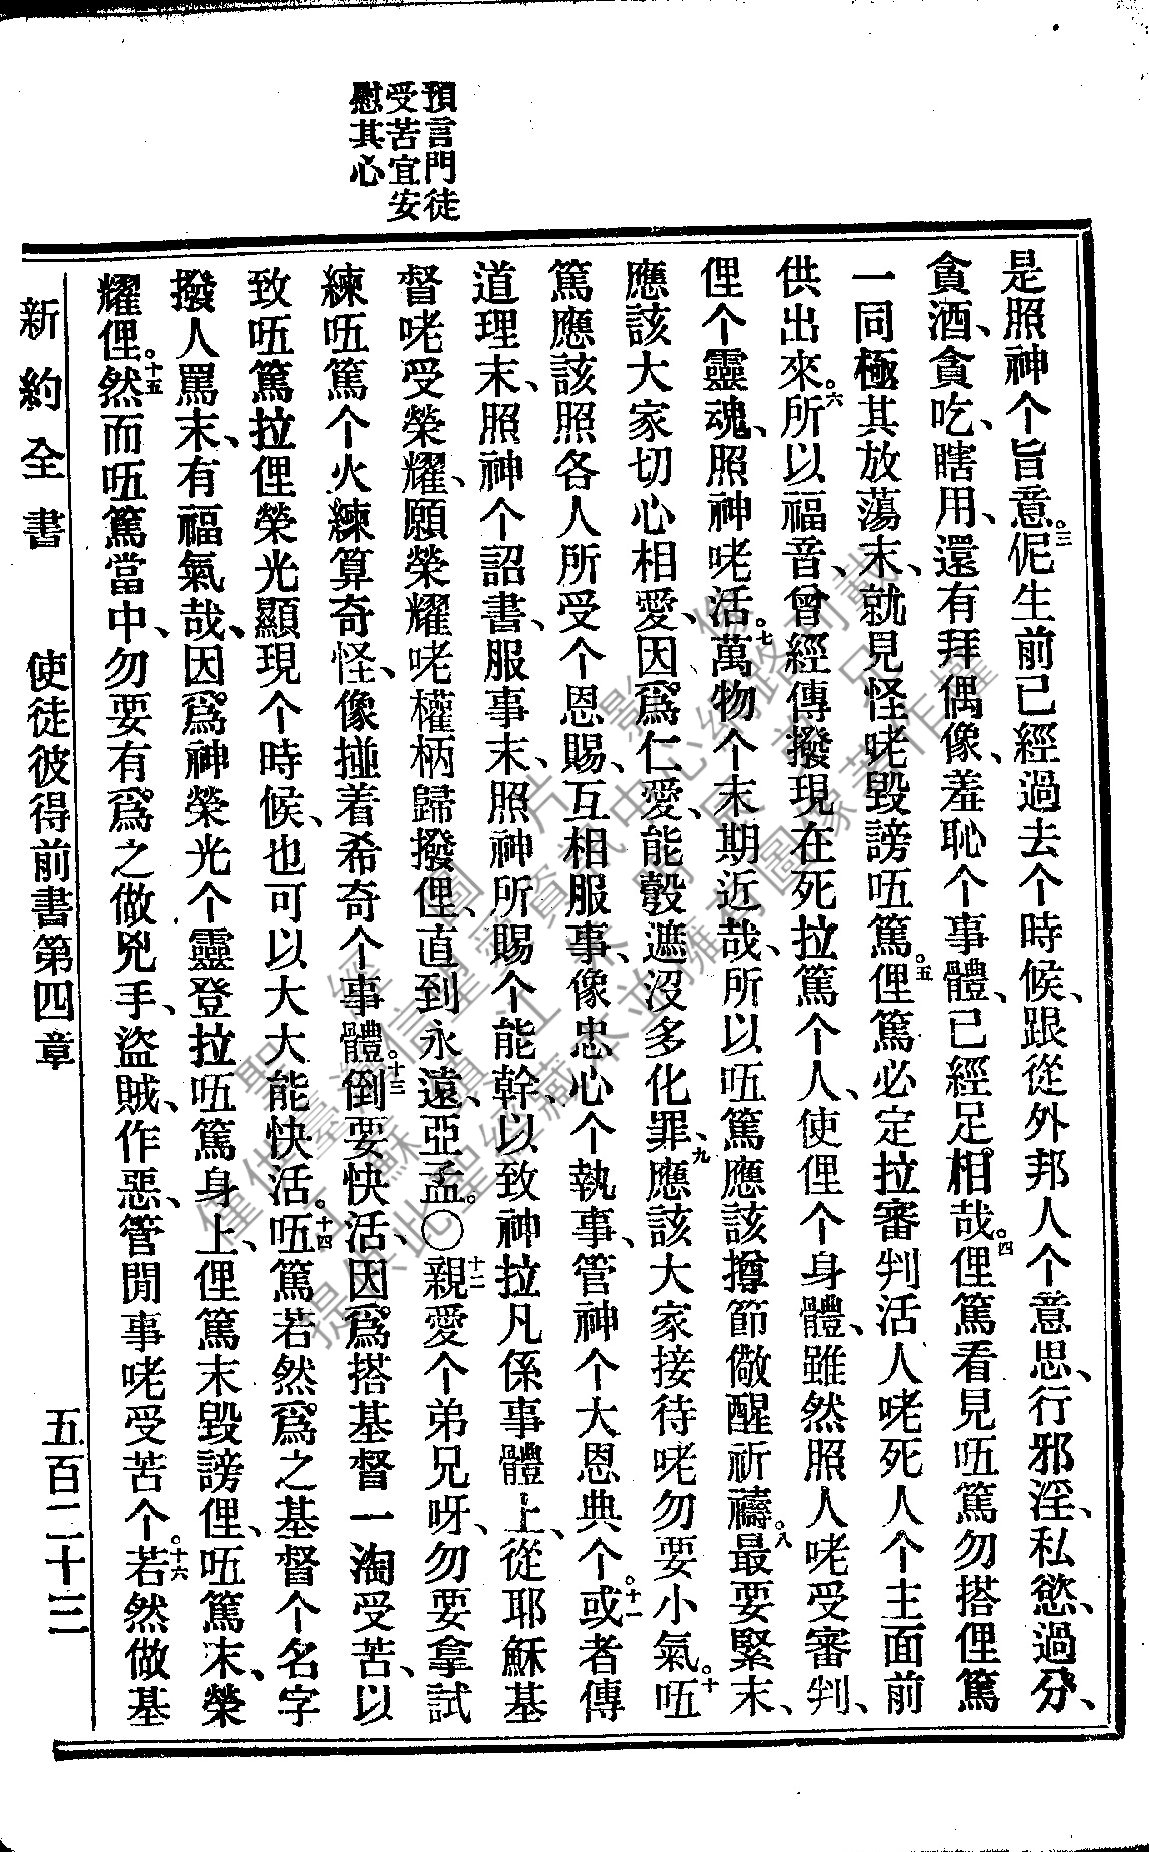 預言門徒
受苦宜安
慰其心
是照神个旨意。三伲生前已經過去个時候、跟從外邦人个意思、行邪淫、私慾、過分、
貪酒、貪吃、瞎用、還有拜偶像、羞恥个事體、已經足相哉。四俚篤看見㕶篤勿搭俚篤
一同極其放蕩末、就見怪咾毀謗㕶篤。五俚篤必定拉審判活人咾死人个主面前
供出來。六所以福音、曾經傳撥現在死拉篤个人、使俚个身體、雖然照人咾受審判、
俚个靈魂、照神咾活。七萬物个末期近哉、所以㕶篤應該撙節儆醒祈禱。八最要緊末、
應該大家切心相愛、因爲仁愛、能彀遮沒多化罪、九應該大家接待咾勿要小氣。十㕶
篤應該照各人所受个恩賜、互相服事、像忠心个執事、管神个大恩典个。十一或者傳
道理末、照神个詔書、服事末、照神所賜个能幹、以致神拉凡係事體上、從耶穌基
督咾受榮耀、願榮耀咾權柄歸撥俚、直到永遠、亞孟。〇十二親愛个弟兄呀、勿要拿試
練㕶篤个火練算奇怪、像撞着希奇个事體。十三倒要快活、因爲搭基督一淘受苦、以
致㕶篤拉俚榮光顯現个時候、也可以大大能快活。十四㕶篤若然爲之基督个名字
撥人罵末、有福氣哉、因爲神榮光个靈登拉㕶篤身上、俚篤末毀謗俚、㕶篤末、榮
耀俚。十五然而㕶篤當中、勿要有爲之做兇手、盜賊、作惡、管閒事咾受苦个。十六若然做基
新約全書　使徒彼得前書第四章　五百二十三
聖經圖片影像
僅供臺灣信望愛資訊中心網路刊載
江蘇鎮江朱明展弟兄
提供此聖經藏本並擁有圖像著作權